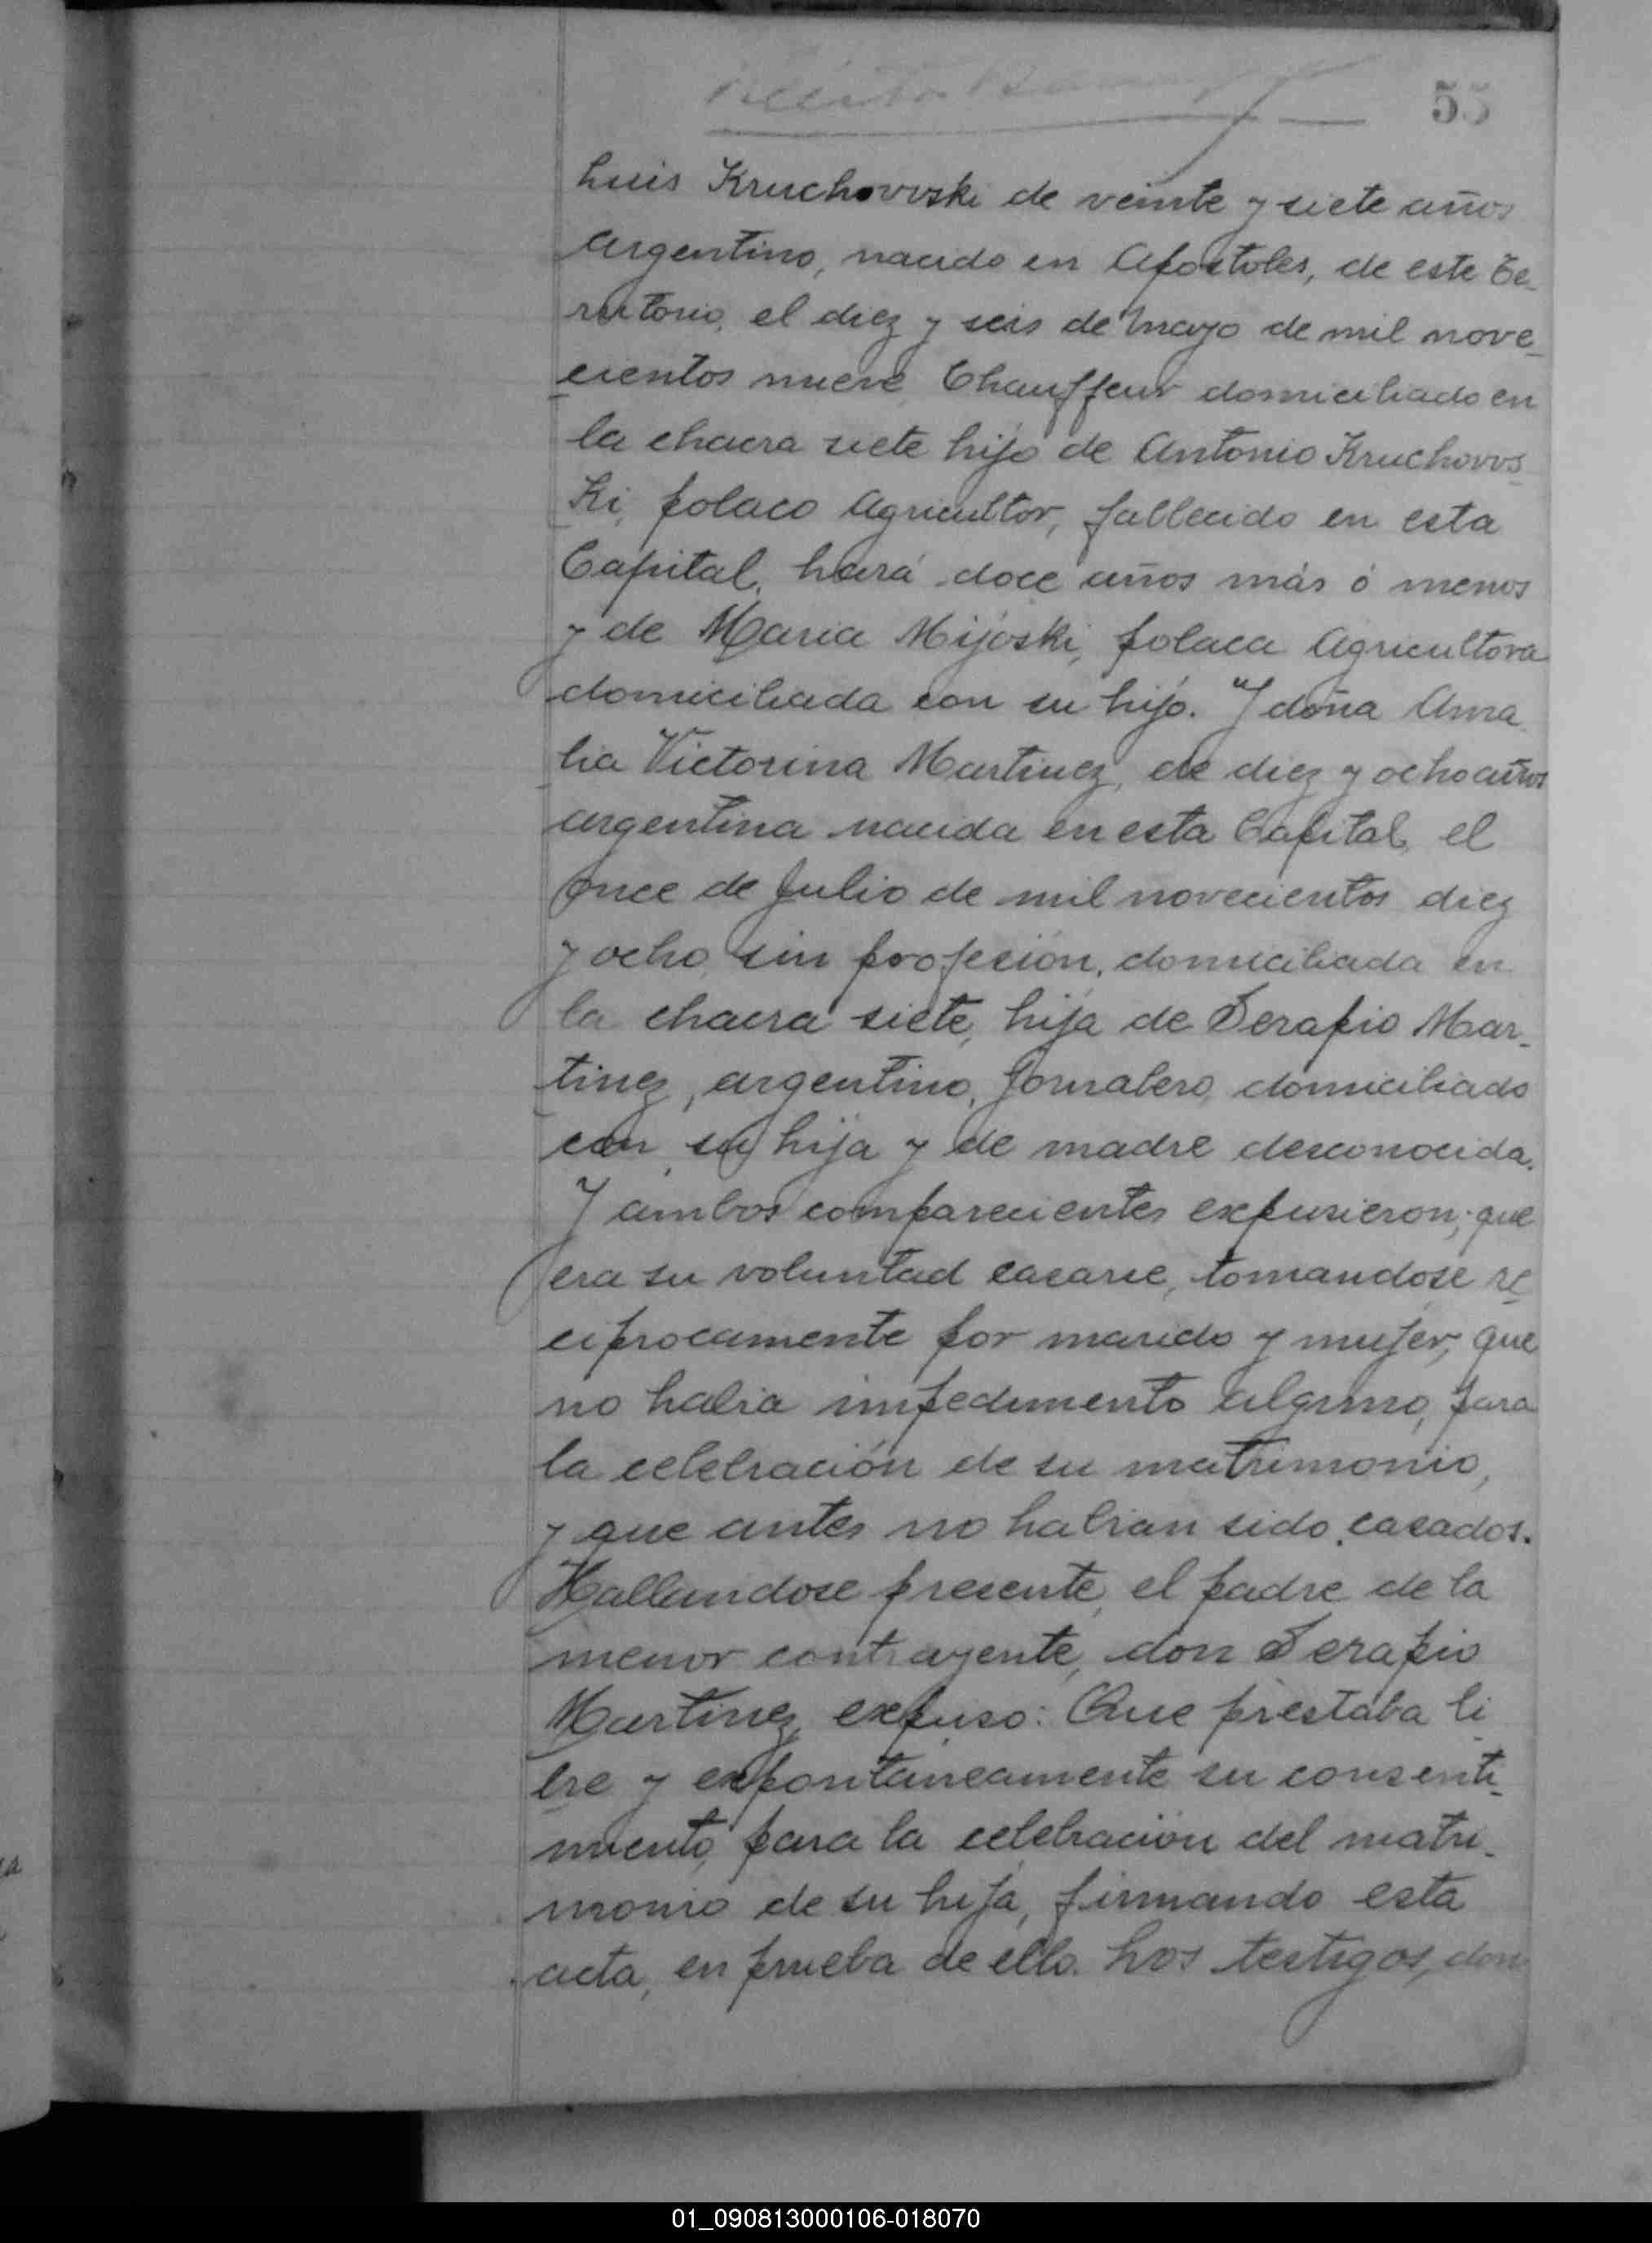 55
Luis Kruchowski de veinte y siete años
argentino, nacido en Apóstoles, de este Te_
rritorio, el diez y seis de Mayo de mil nove_
cientos nueve, Chauffeur domiciliado en
la chacra siete hijo de Antonio Kruchows_
ki, polaco Agricultor, fallecido en esta
Capital, hará doce años más ó menos
y de Maria Mijoski, polaca Agricultora
domiciliada con su hijo. Y doña Ama_
lia Victorina Martinez, de diez y ocho años
argentina nacida en esta Capital, el
once de Julio de mil novecientos diez
y ocho, sin profesión, domiciliada en
la chacra siete, hija de Serapio Mar_
tinez, argentino, Jornalero, domiciliado
con su hija y de madre desconocida.
Y ambos comparecientes expusieron; que
era su voluntad casarse, tomandose re_
ciprocamente por marido y mujer; que
no habia impedimento alguno, para
la celebración de su matrimonio,
y que antes no habian sido casados.
Hallandose presente, el padre de la
menor contrayente, don Serapio
Martinez, expuso: Que prestaba li_
bre y expontaneamente su consenti_
miento, para la celebración del matri_
monio de su hija, firmando esta
acta, en prueba de ello. Los testigos, don
01_090813000106-018070